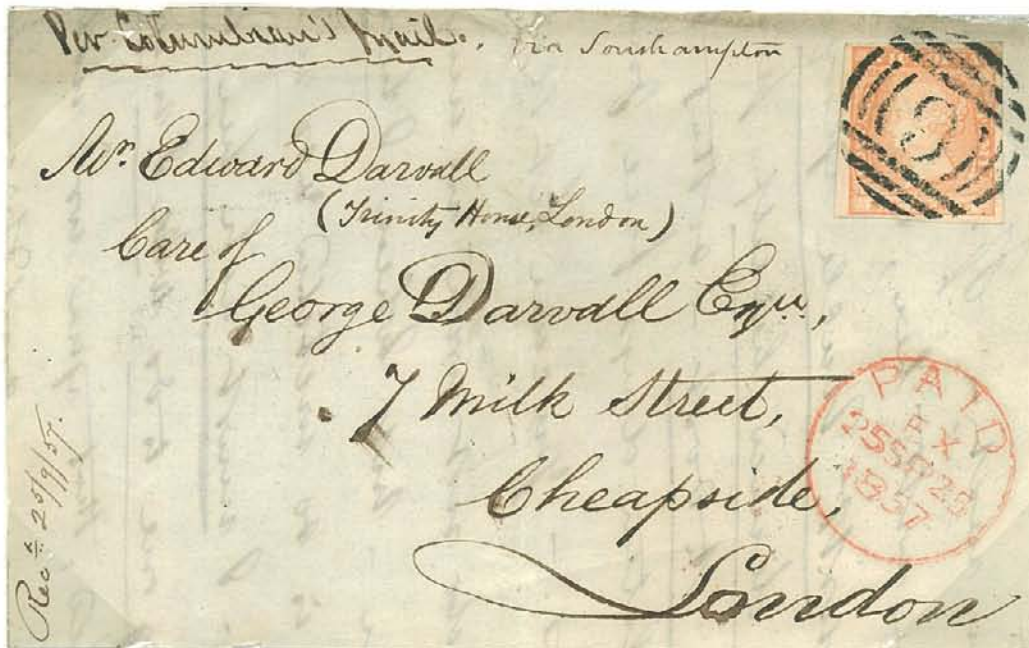 Per Columbian's Mail. via Southampton
8
Mr. Edward Darvall
(Trinity House, London)
Care of
George Darvall Esqre.,
7 Milk Street,
Cheapside,
London
PAID
AX
25 SP 25
1857
Recd. 25/9/57.